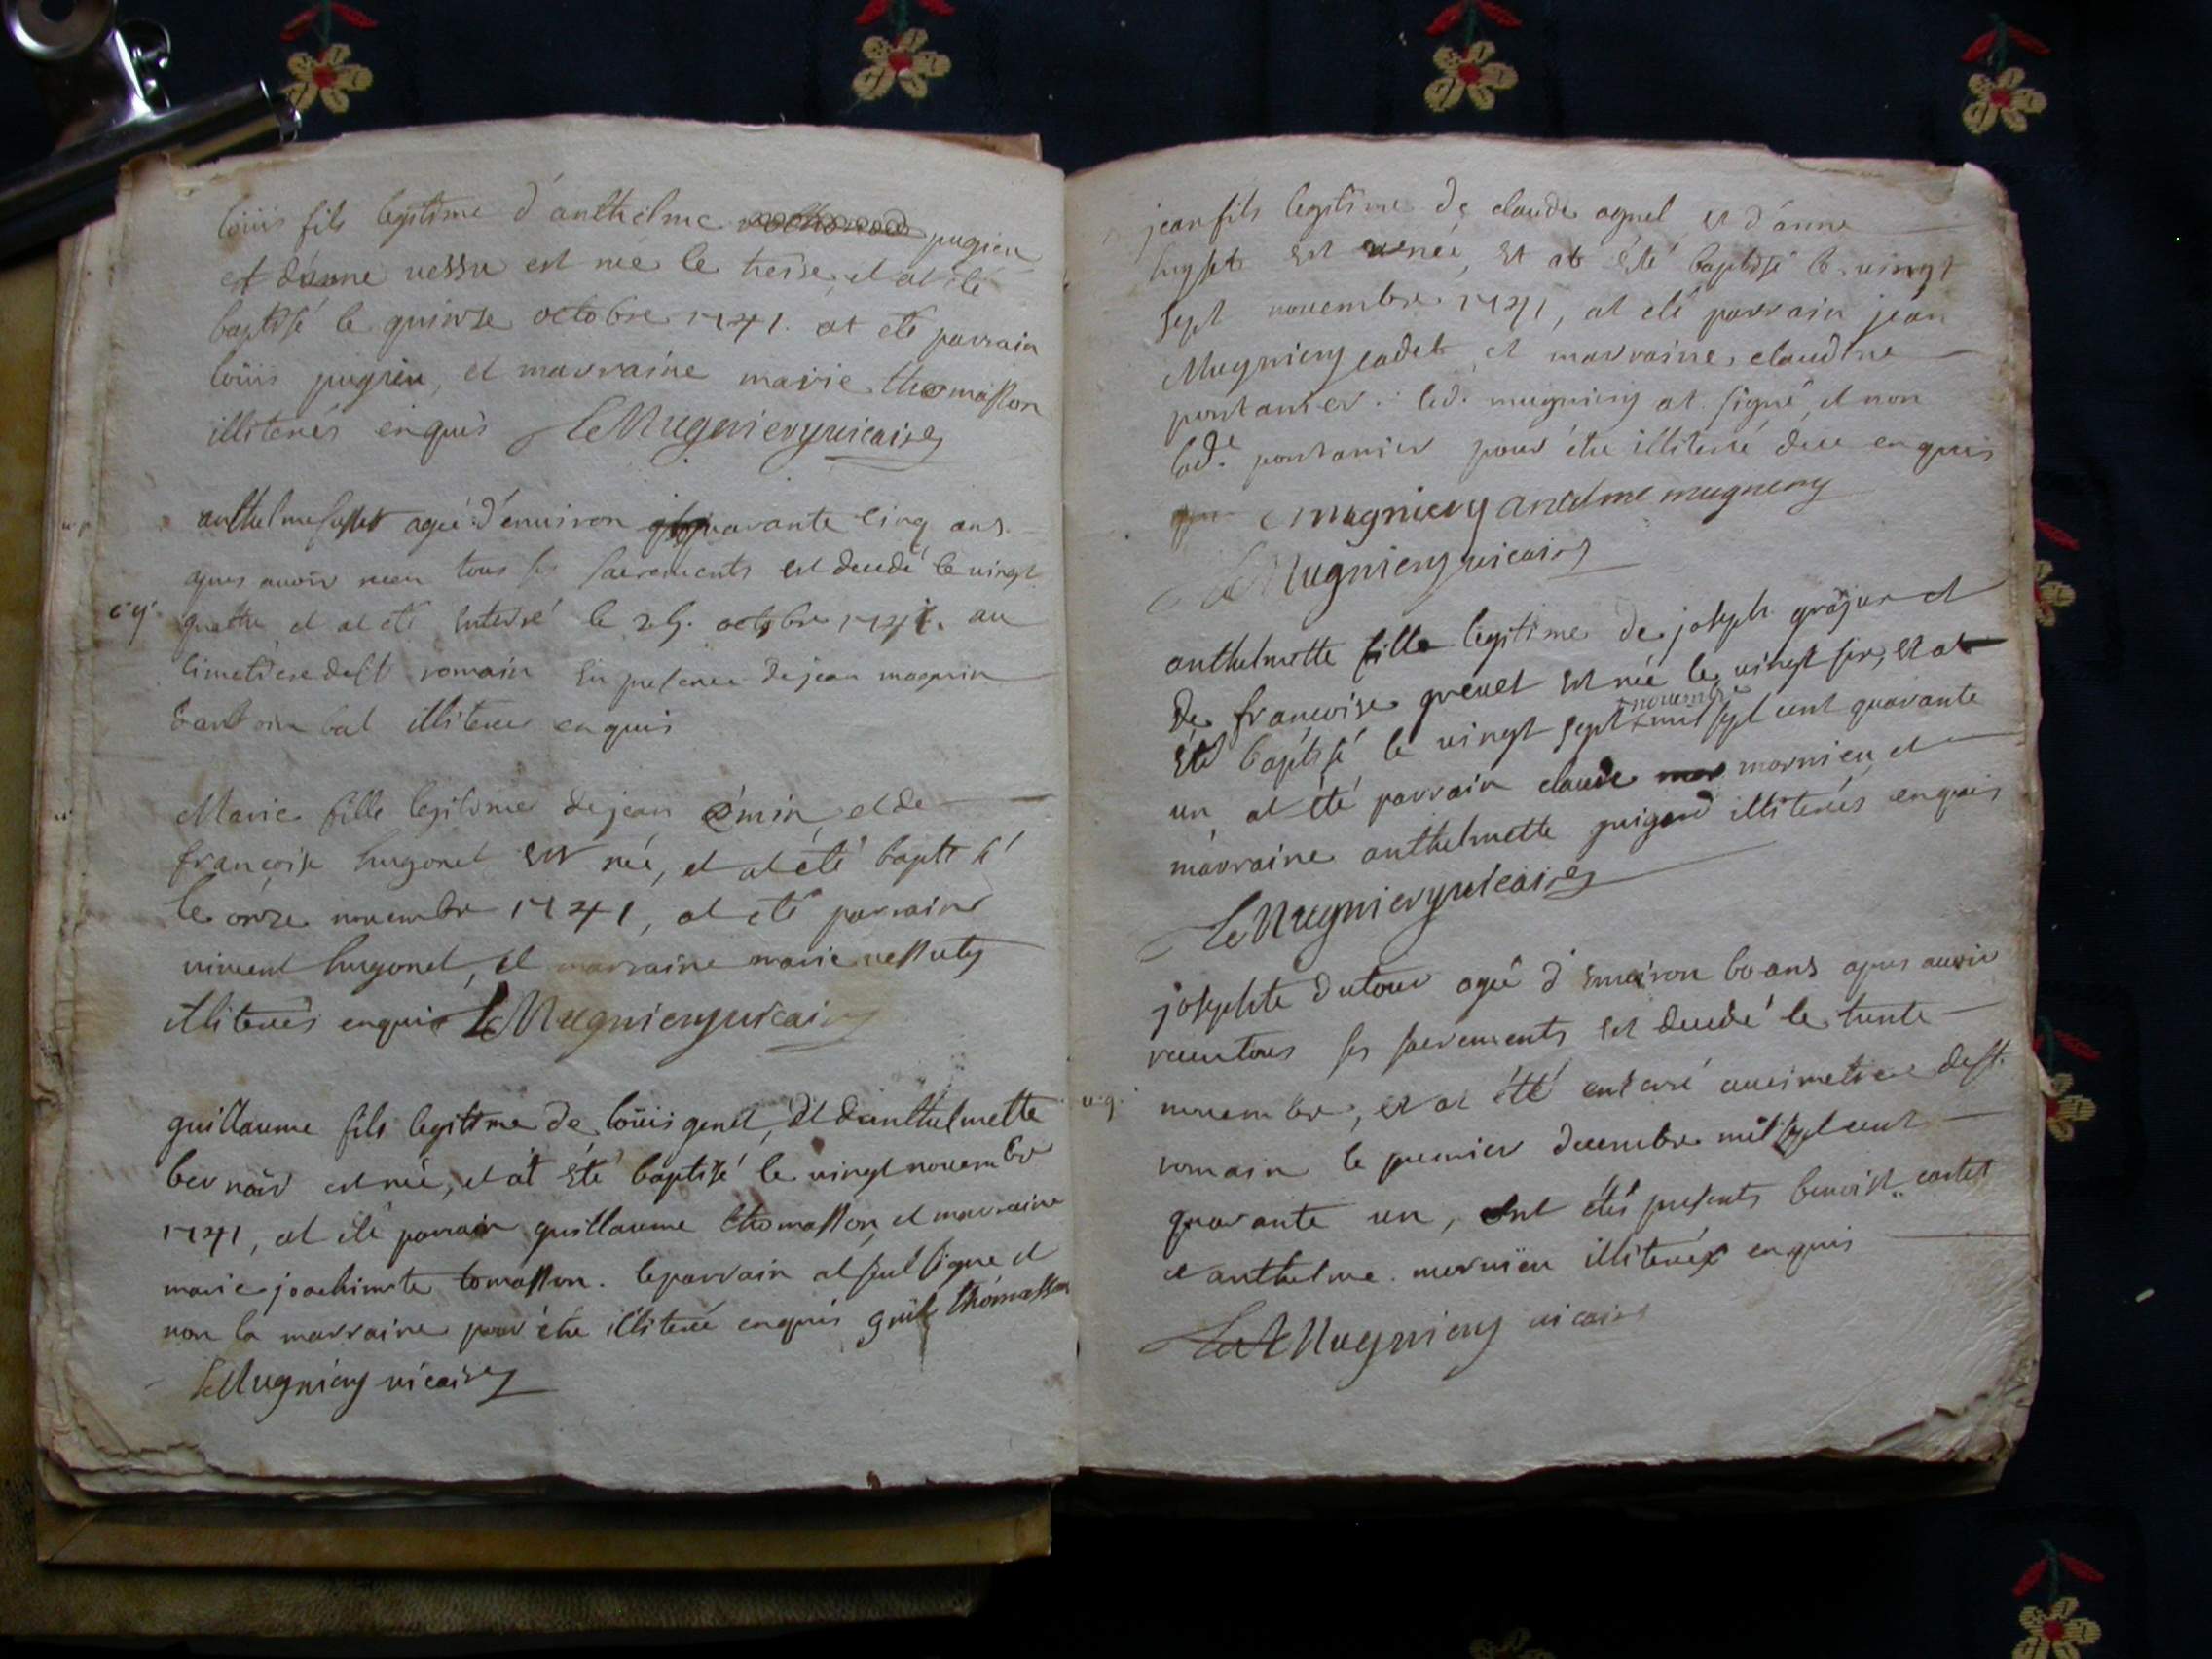 loüis fils legitime d'anthelme pugieu
et d'anne vessu est né le treise, et at eté
baptisé le quinze octobre 1741. at eté parrain
loüis pugieu, et marraine marie thomasson
illiterés enquis LeMugnieryvicaire
anthelme agée d'environ quarante cinq ans
apres auoir receu tous ses sacrements est decedé le vingt
quatre et at eté enterré le 25. octobre 1741. au
cimetiere de st romain en presence de jean magnin
bal illiteres enquis
Marie fille legitime de jean émin et de
françoise hugonet est née, et at eté baptisé
le onze novembre 1741, at eté parrain
vincent hugonet, et marraine marie vessuty
illiterés enquis Le Mugnieryvicaire
guillaume fils legitime de loüis genet, et d'anthelmette
bernard est né, et at eté baptisé le vingt novembre
1741, at eté parrain guillaume thomasson, et marraine
marie joachimte tomasson. le parrain at seul signé et
non la marraine pour étre illiteré enquis guil thomasson
LeMugniery vicaire
jean fils legitime de claude agnel et d'anne
huget est née, et at été baptisé le vingt
sept novembre 1741, at eté parrain jean
Mugniery cadet et marraine claudine
pontanier. led. mugniery at signé, et non
lade. pontanier pour étre illiteré dece enquis
mugniery anthelme mugniery
LeMugniery vicaire
anthelmette fille legitime de joseph grojan et
de françoise grevet est née le vingt six, et at
été baptisé le vingt sept novembre mil sept cent quarante
un, at été parrain claude mornieu et
marraine anthelmette guigard illiterés enquis
LeMugnieryvicaire
josephte dutour agée d'environ 60 ans apres auoir
receu tous ses sacrements est decedé le trente
novembre, et at été enterré au cimetiere de st.
romain le premier decembre mil sept cent
quarante un, ont étés presents benoist cartet
et anthelme mornieu illiterés enquis
Le Mugniery vicaire